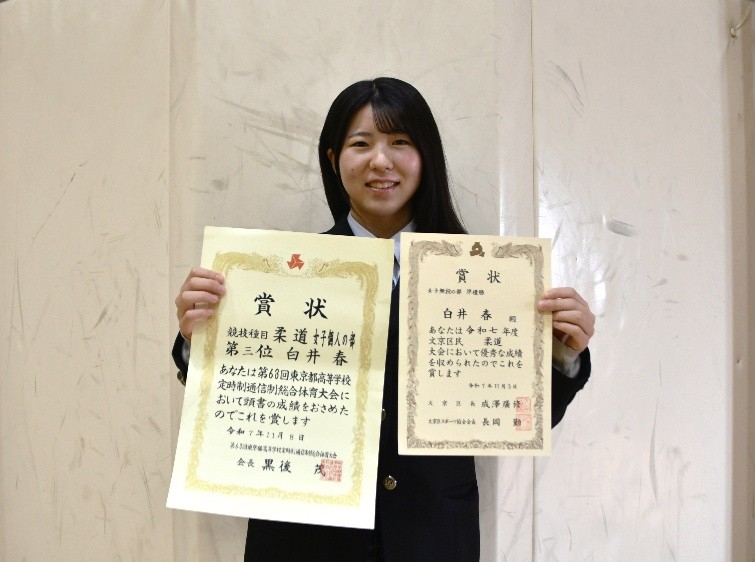 賞状
競技種目 柔道 女子個人の部
第三位 白井 春
あなたは第68回東京都高等学校
定時制通信制総合体育大会に
おいて頭書の成績をおさめた
のでこれを賞します
令和7年11月8日
会長 黒後 茂
賞状
女子無段の部 準優勝
白井 春 殿
あなたは令和七年度
文京区民 柔道
大会において優秀な成績
を収められたのでこれを
賞します
令和7年11月3日
文京区長 成澤廣修
文京区スポーツ協会会長 長岡 勤